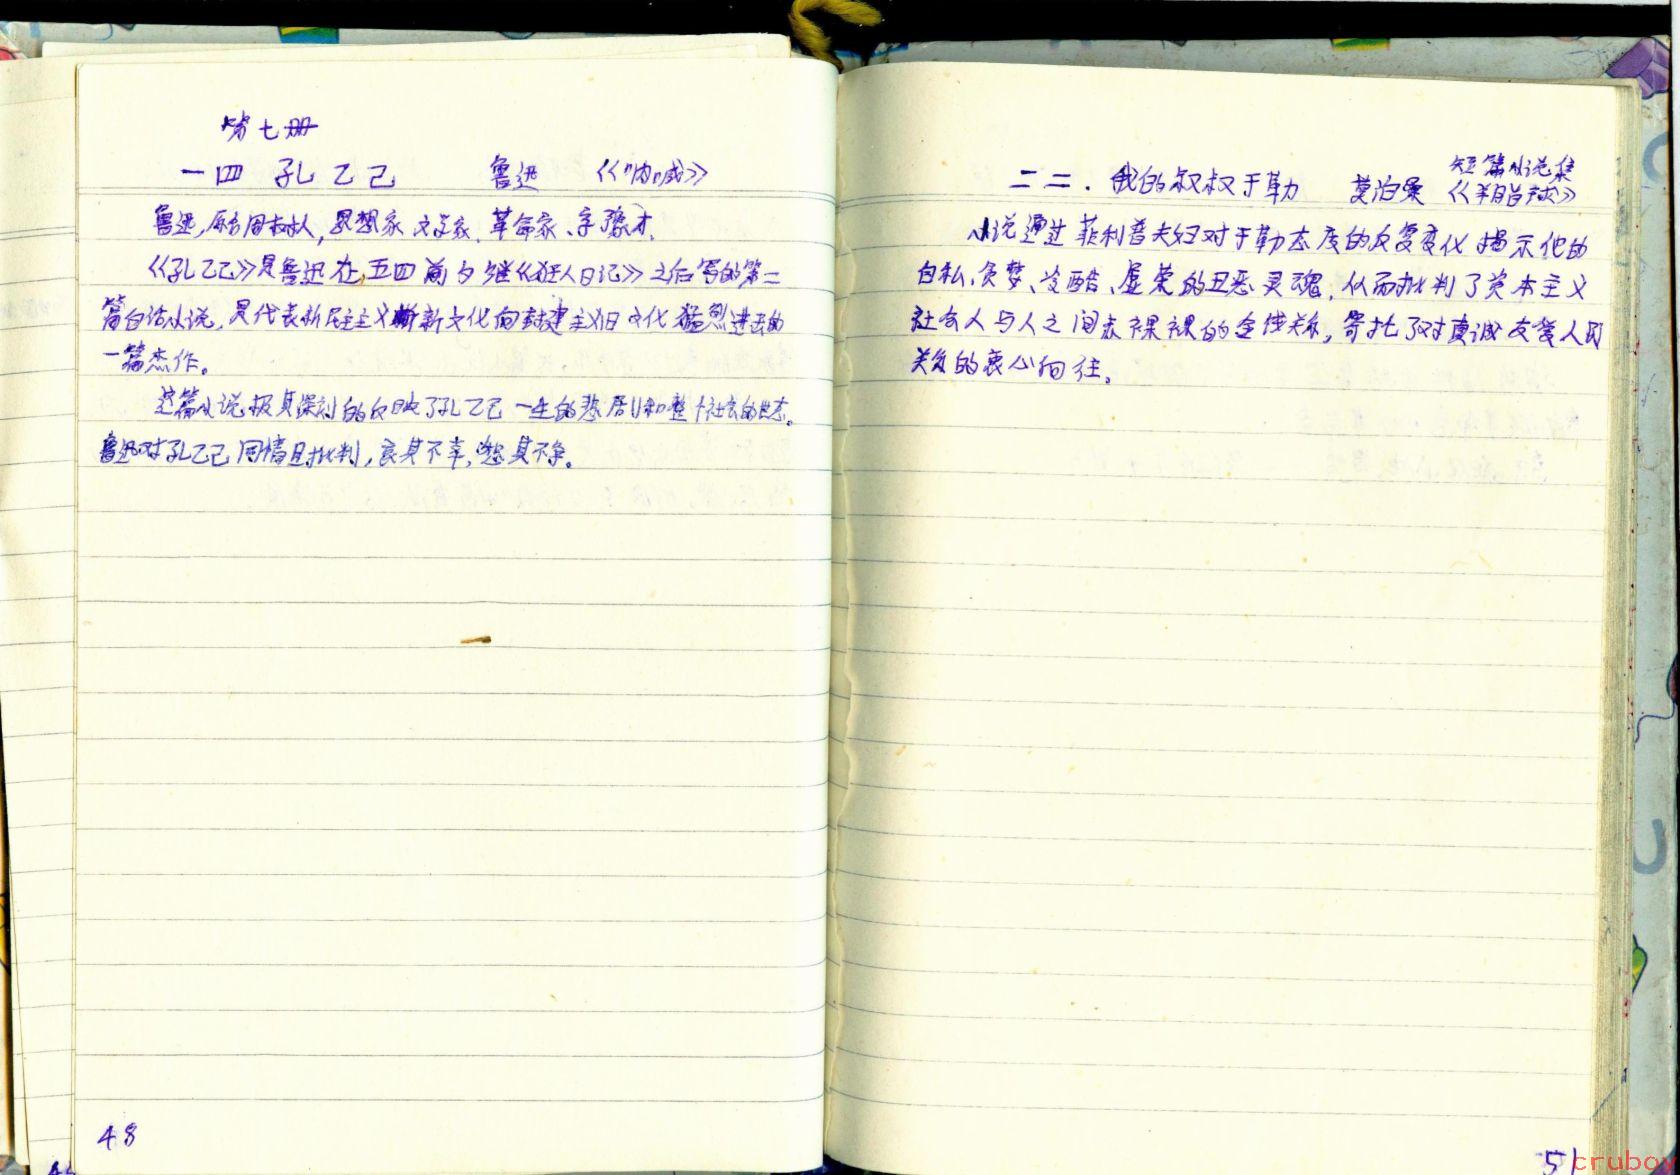 第七册
一四 孔乙己 鲁迅 《呐喊》
鲁迅,原名周树人,思想家、文学家、革命家、字豫才.
《孔乙己》是鲁迅在五四前夕继《狂人日记》之后写的第二
篇白话小说,是代表新民主主义新文化向封建主义旧文化猛烈进击的
一篇杰作。
这篇小说极其深刻的反映了孔乙己一生的悲剧和整个社会的世态。
鲁迅对孔乙己同情且批判,哀其不幸,怒其不争。
48
二二.我的叔叔于勒 莫泊桑 短篇小说集
《羊脂球》
小说通过菲利普夫妇对于勒态度的反复变化揭示他的
自私、贪婪、冷酷、虚荣的丑恶灵魂,从而批判了资本主义
社会人与人之间赤裸裸的金钱关系,寄托了对真诚友爱人间
关系的衷心向往。
51
cruboy